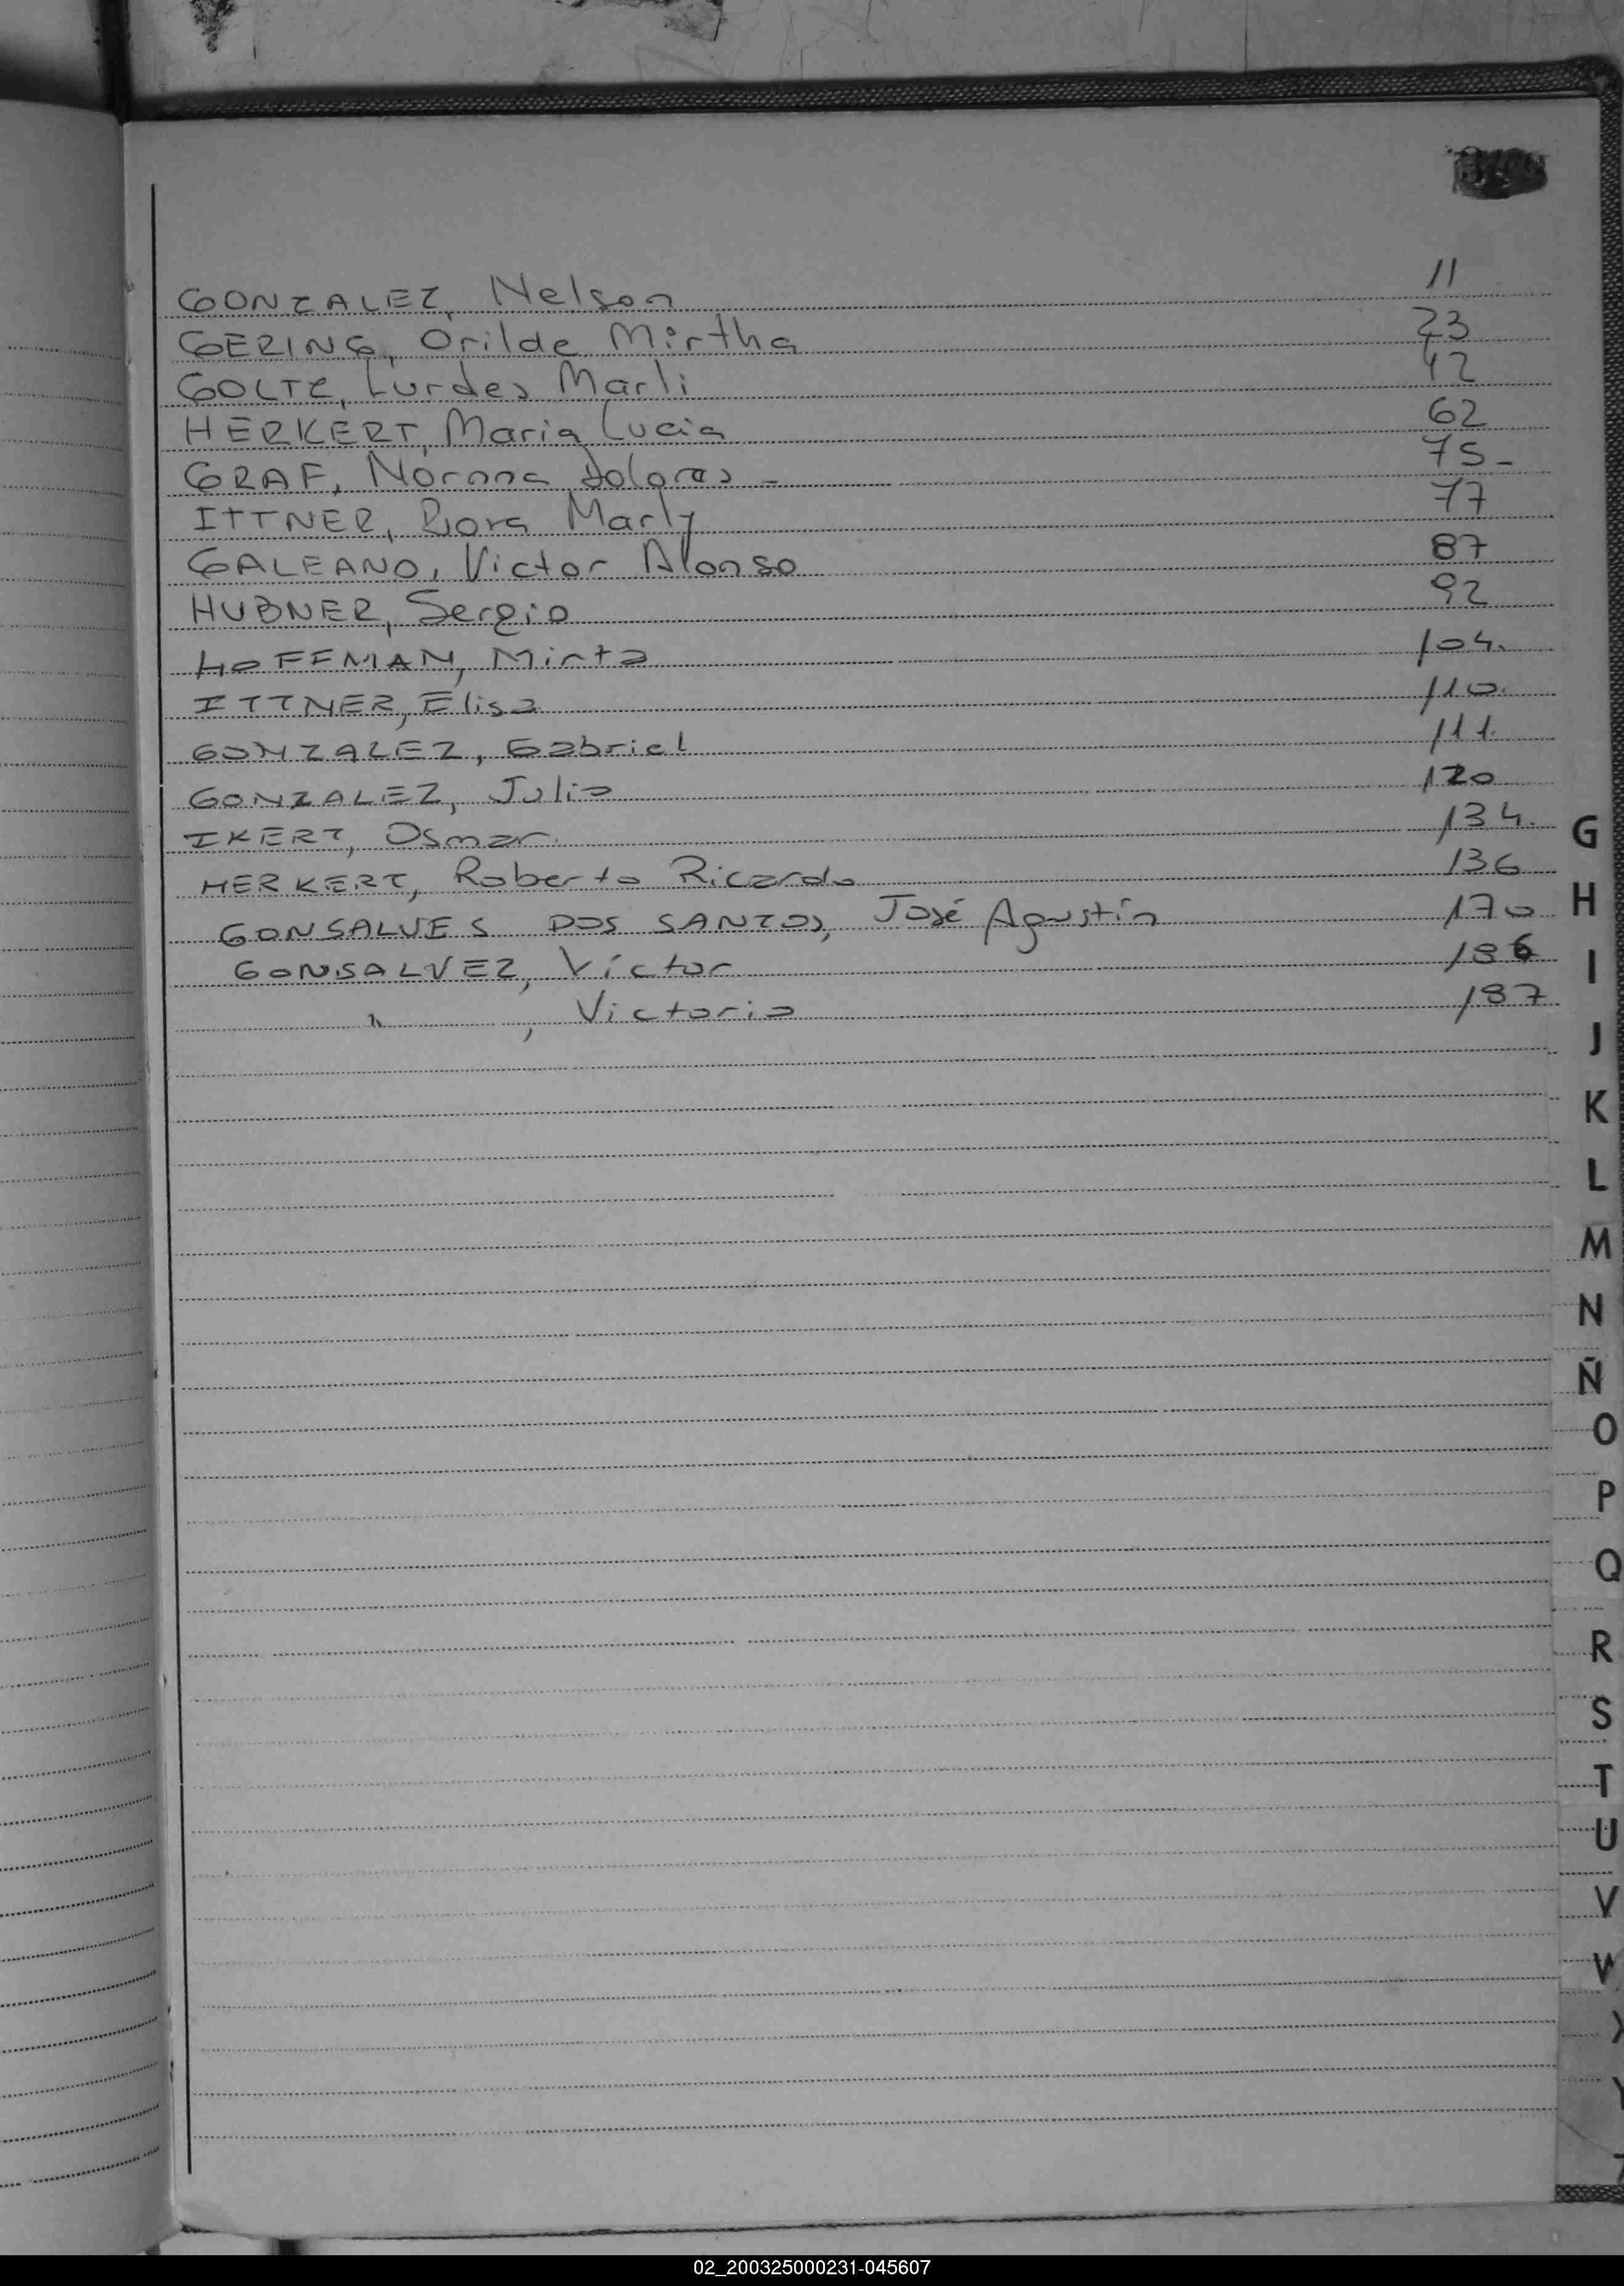 GONZALEZ, Nelson 11
GERING, Orilde Mirtha 23
GOLTZ, Lurdes Marli 42
HERKERT, Maria Lucia 62
GRAF, Dolores - 75-
ITTNER, Marly 77
GALEANO, Victor Alonso 87
HUBNER, Sergio 92
HOFFMAN, Mirta 104.
ITTNER, Elisa 110.
GONZALEZ, Gabriel 111.
GONZALEZ, Julio 120
IKERT, Osmar. 134.
HERKERT, Roberto Ricardo 136
GONSALVES DOS SANTOS, José Agustín 170
GONSALVEZ, Víctor 186
" , Victoria 187
G
H
I
J
K
L
M
N
Ñ
O
P
Q
R
S
T
U
V
W
X
Y
02_200325000231-045607